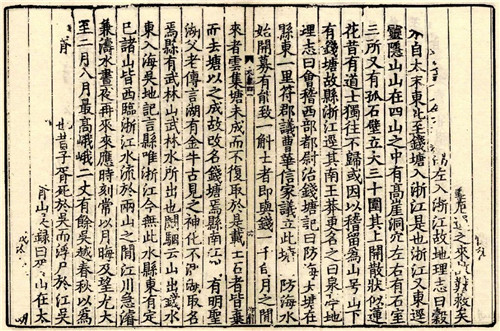 左入浙江故地理志曰榖
水自太末東北至錢塘入浙江是也浙江又東逕
靈隱山山在四山之中有高崖洞穴左右有石室
三所又有孤石壁立大三十圍其上開散狀似蓮
花昔有道士獨往不歸或因以稽留為山号山下
有錢塘故縣浙江逕其南王莽更名之曰泉亭地
理志曰會稽西部都尉治錢塘記曰防海大塘在
縣東一里符郡議曹華信家議立此塘防海水
始開募有能致一斛土者即與錢一千旬月之間
來者雲集塘未成而不復取於是載土石者皆棄
而去塘以之成故改名錢塘焉縣南江有明聖
湖父老傳言湖有金牛古見之神化不測湖取名
焉縣有武林山武林水所出也闞駰云山出錢水
東入海吳地記言縣唯浙江今無此水縣東有定
巳諸山皆西臨浙江水流於兩山之間江川急濬
兼濤水晝夜再來來應時刻常以月晦及望尤大
至二月八月最高峨峨二丈有餘吳越春秋以為
子胥死於吳而浮尸於江吳
胥山錄曰胥山在太